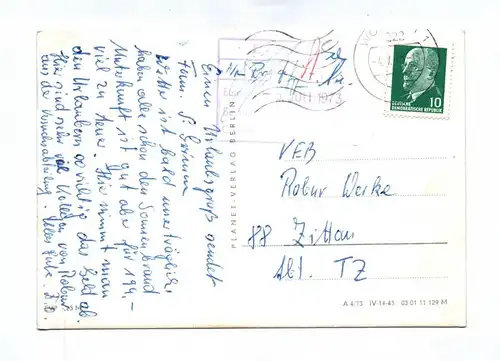 Einen Urlaubsgruß sendet
Fam. S.
Hitze ist bald unerträglich,
haben alle schon den Sonnenbrand
Unterkunft ist gut aber für 194,-
viel zu teuer. Hier nimmt man
den Urlaubern so richtig das Geld ab.
Hier sind sehr viel Kollegen von Robur
aus der Versuchsabteilung. Alles Gute.
PLANET-VERLAG BERLIN
1973
DEUTSCHE
DEMOKRATISCHE REPUBLIK
10
VEB
Robur Werke
88 Zittau
Abt. TZ
A 4/73 IV-14-45 03 01 11 129 M